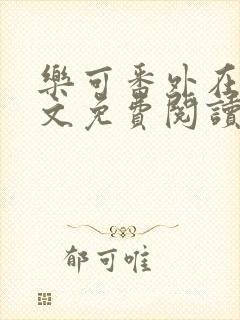 樂可番外在
文免費閱讀
郁可唯